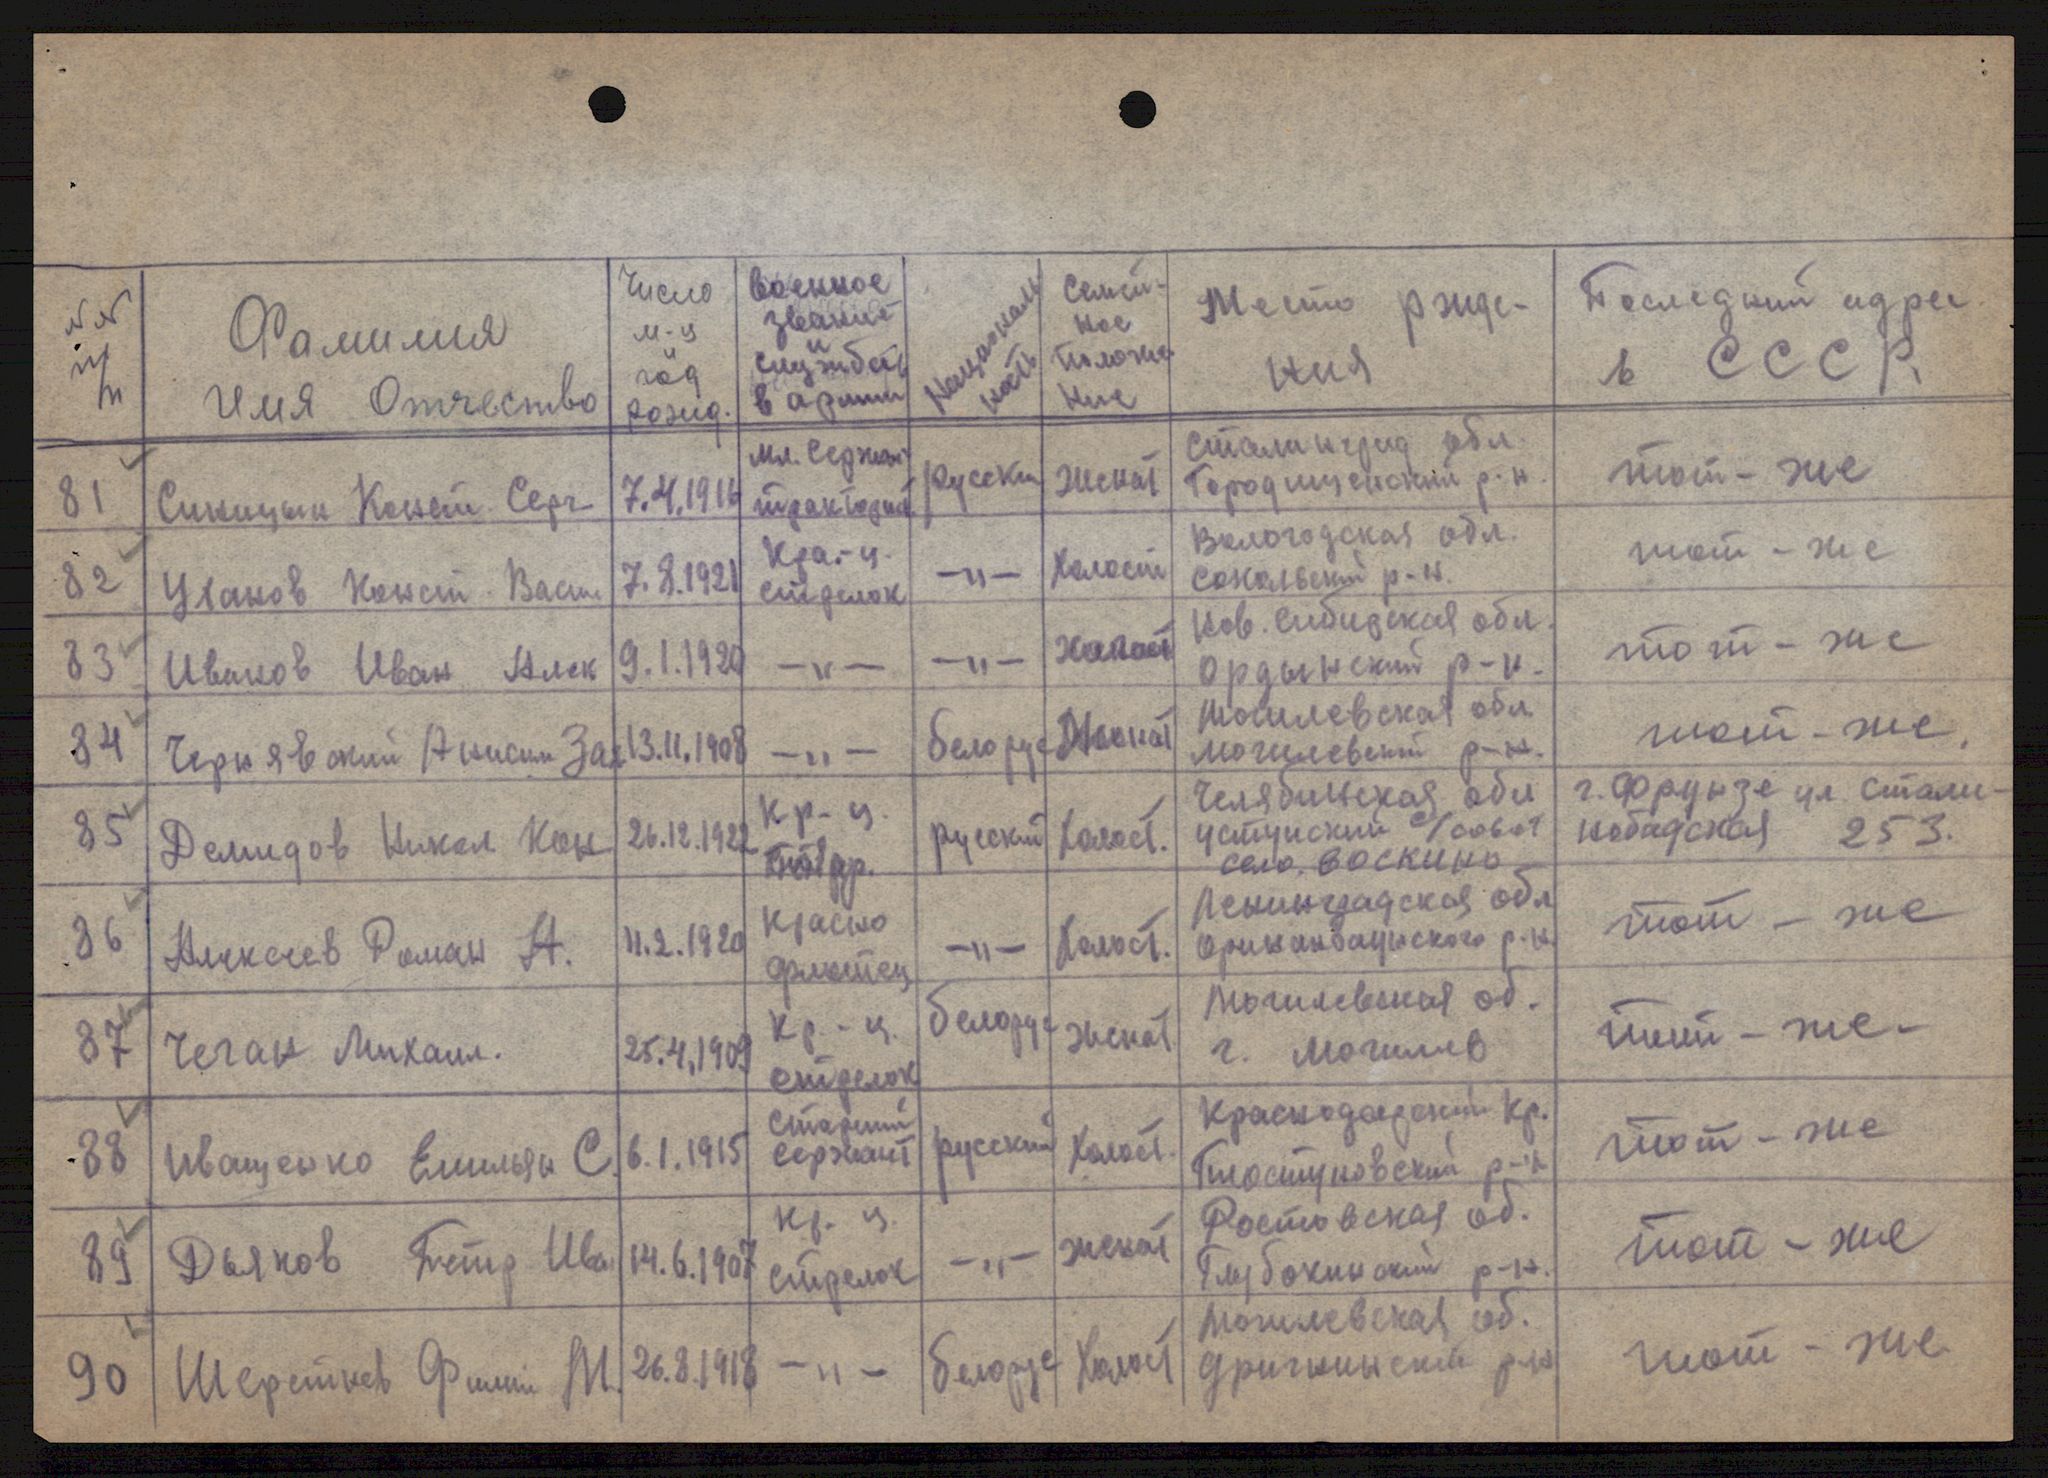 №№ п/п | Фамилия Имя Отчество | Число м-ц год рожд. | Военное звание и служба в армии | Националь ность | Семей- ное положе ние | Место ржде- ния | Последний адрес в СССР.
81 | Синицын Конст. Серг | 7.4.1916 | Мл. Сержант | русский | женат | Сталинград обл. Городищенский р-н. | тот-же
82 | Уханов Конст. Васил | 7.8.1921 | Кра.-ц. стрелок | -"- | Холост | Вологодская обл. Сокольский р-н. | тот-же
83 | Иванов Иван Алек | 9.1.1920 | -"- | -"- | холост | Нов. Сибирская обл. Ордынский р-н. | тот-же
84 | Чернявский Анисим Зах | 13.11.1908 | -"- | белорус | Женат | Могилевская обл Могилевский р-н. | тот-же.
85 | Демидов Никол Кон | 26.12.1922 | Кр-ц. | русский | Холост. | Челябинская обл село. Воскино | г. Фрунзе ул Стали- набадская 253.
86 | Алексеев Роман А. | 11.2.1920 | Красно флотец | -"- | Холост. | Ленинградская обл р-н | тот-же
87 | Чеган Михаил. | 25.4.1909 | Кр.-ц. стрелок | белорус | женат | Могилевская об. г. Могилев | тот-же-
88 | Иващенко Емильян С. | 6.1.1915 | Старший сержант | русский | Холост. | Краснодарский Кр. Пластуновский р-н | тот-же
89 | Дьяков Петр Ива | 14.6.1907 | Кр-ц. стрелок | -"- | женат | Ростовская об. Глубокинский р-н. | тот-же
90 | Шеретнев Филип М. | 26.8.1918 | -"- | белорус | Холост | Могилевская об. р-н | тот-же